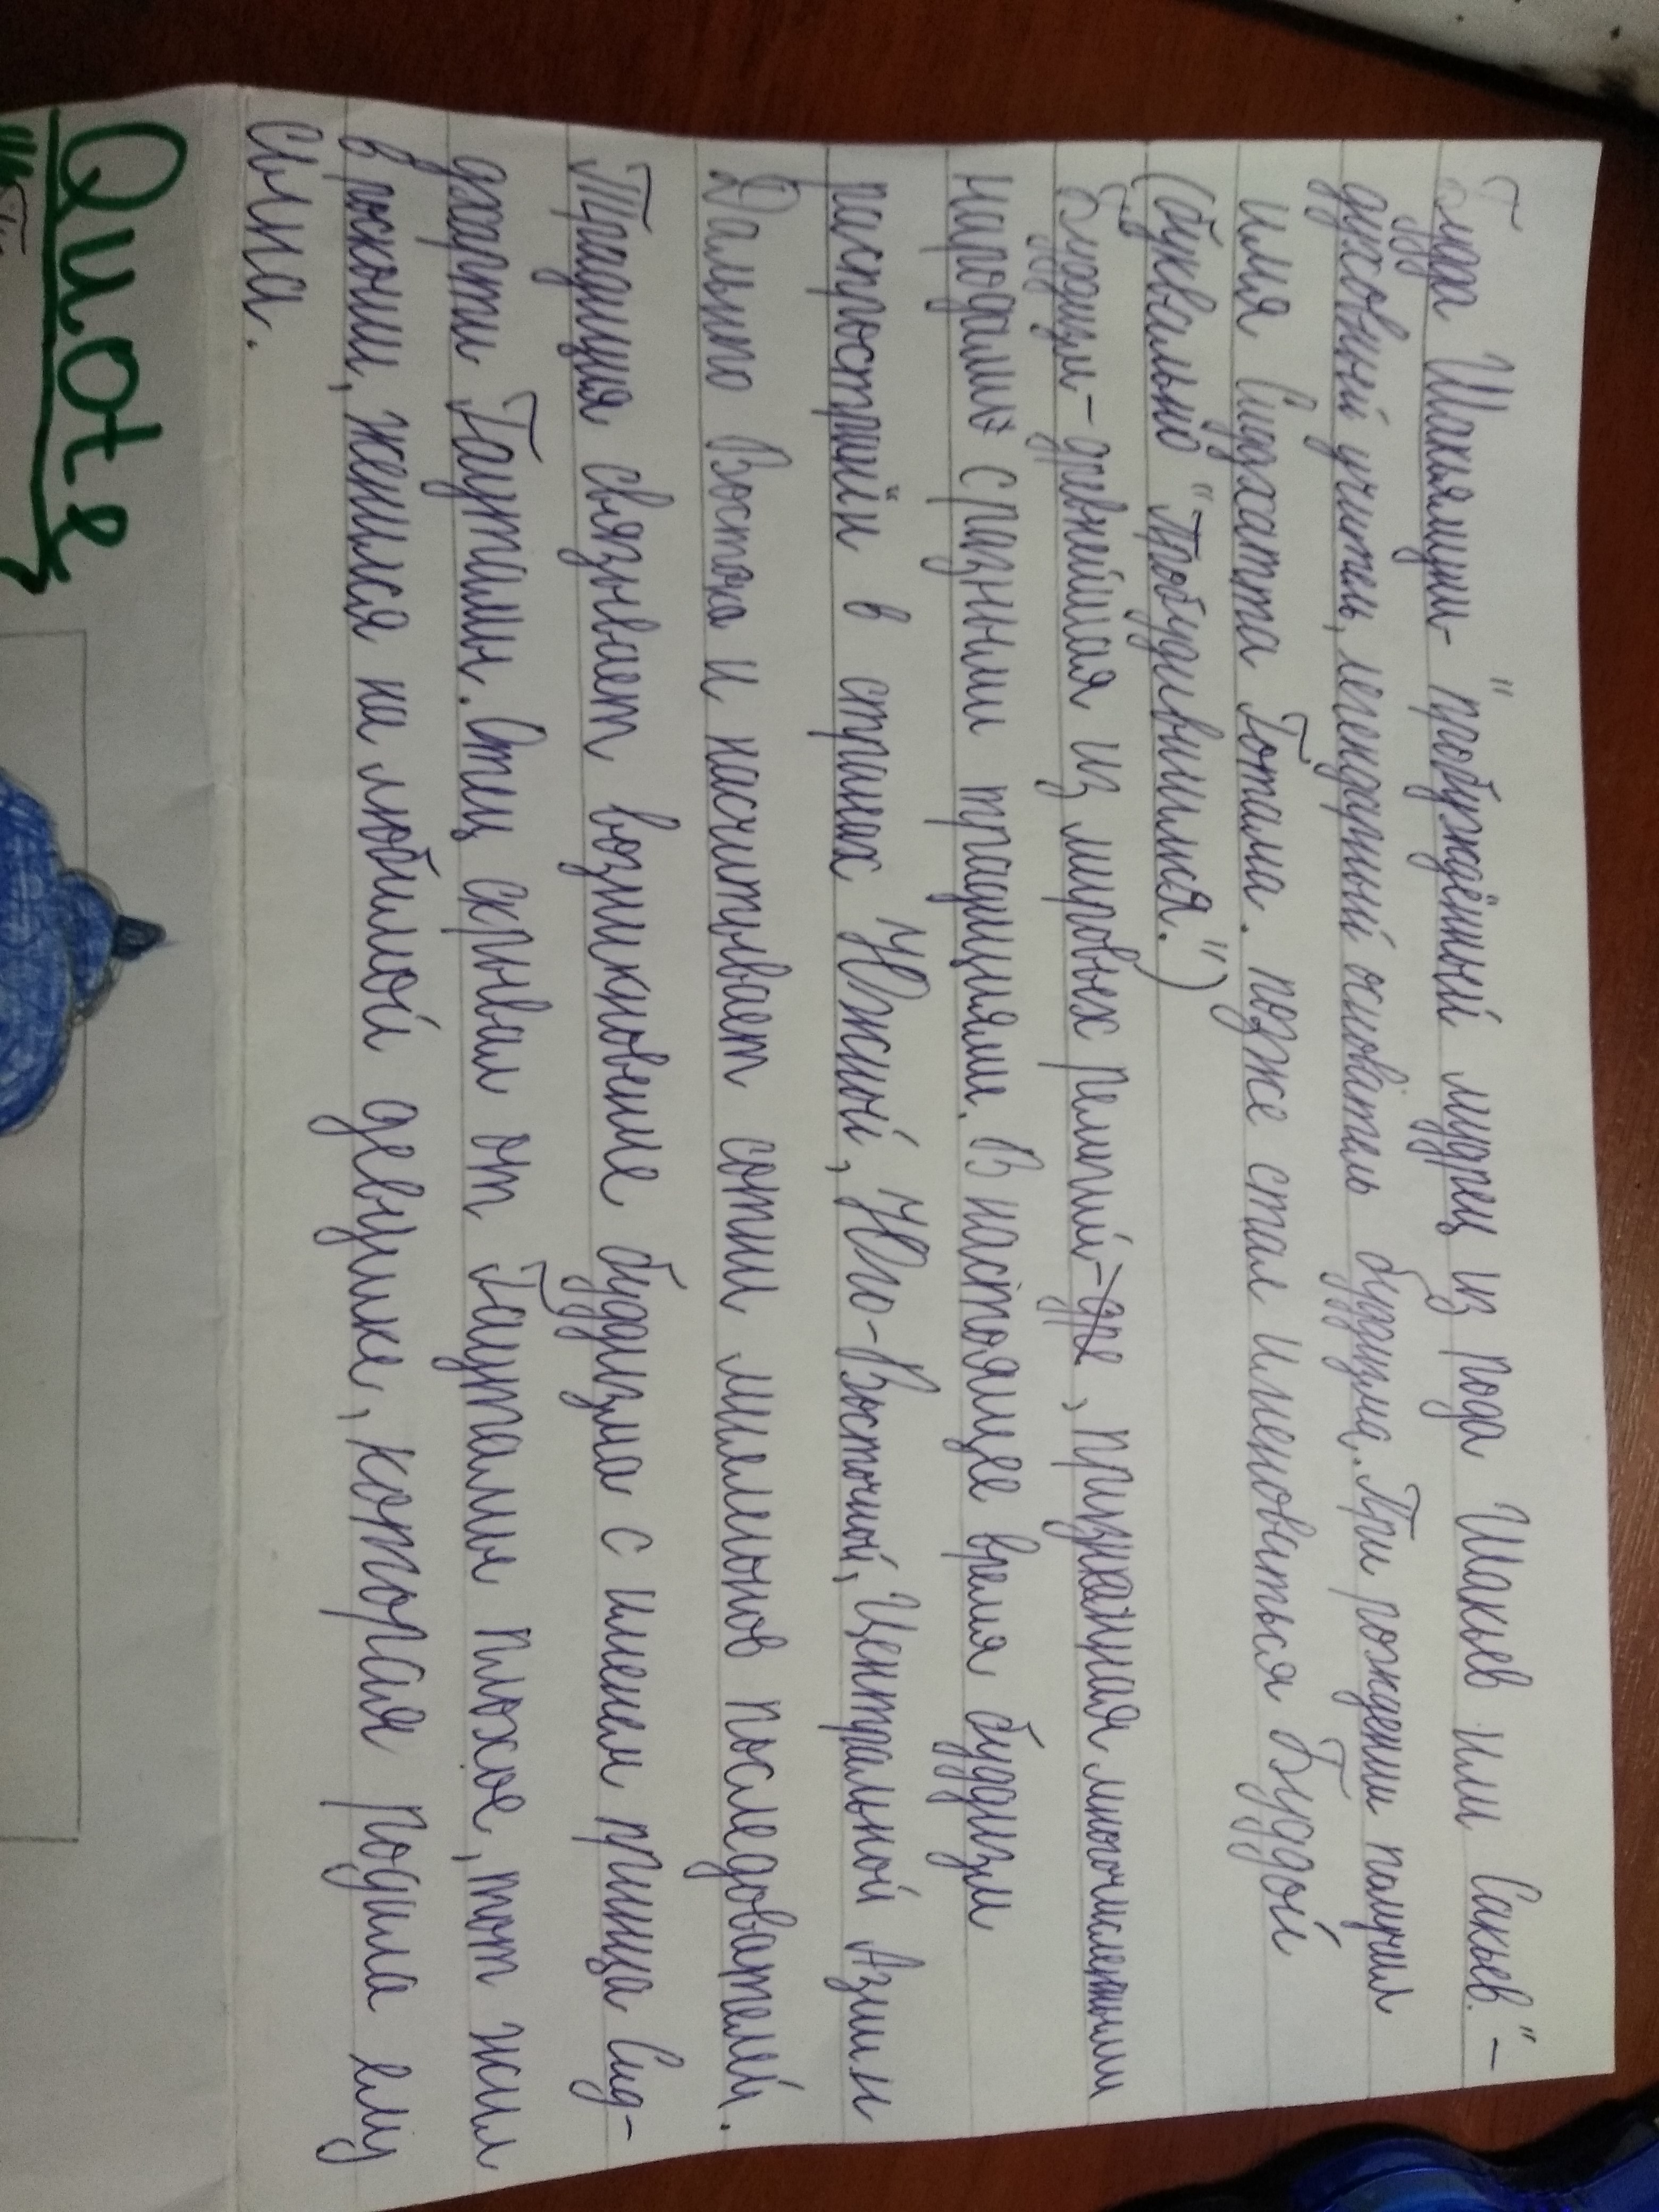 Будда Шакьямуни- "пробуждённый мудрец из рода Шакьев или Сакьев." -
духовный учитель, легендарный основатель буддизма. При рождении получил
имя Сиддхаттха Готама. позже стал именоваться Буддой
(буквально "Пробудившимся.")
Буддизм - древнейшая из мировых религий - дре, признанная многочисленными
народами с разными традициями. В настоящее время буддизм
распострнён в странах Южной, Юго-Восточной, Центральной Азии и
Дальнго Востока и насчитывает сотни миллионов последователей.
Традиция связывает возникновение буддизма с именем принца Сид-
дхарти Гаутамы. Отец скрывал от Гаутамы плохое, тот жил
в роскоши, женился на любимой девушке, которая родила ему
сына.
Quote